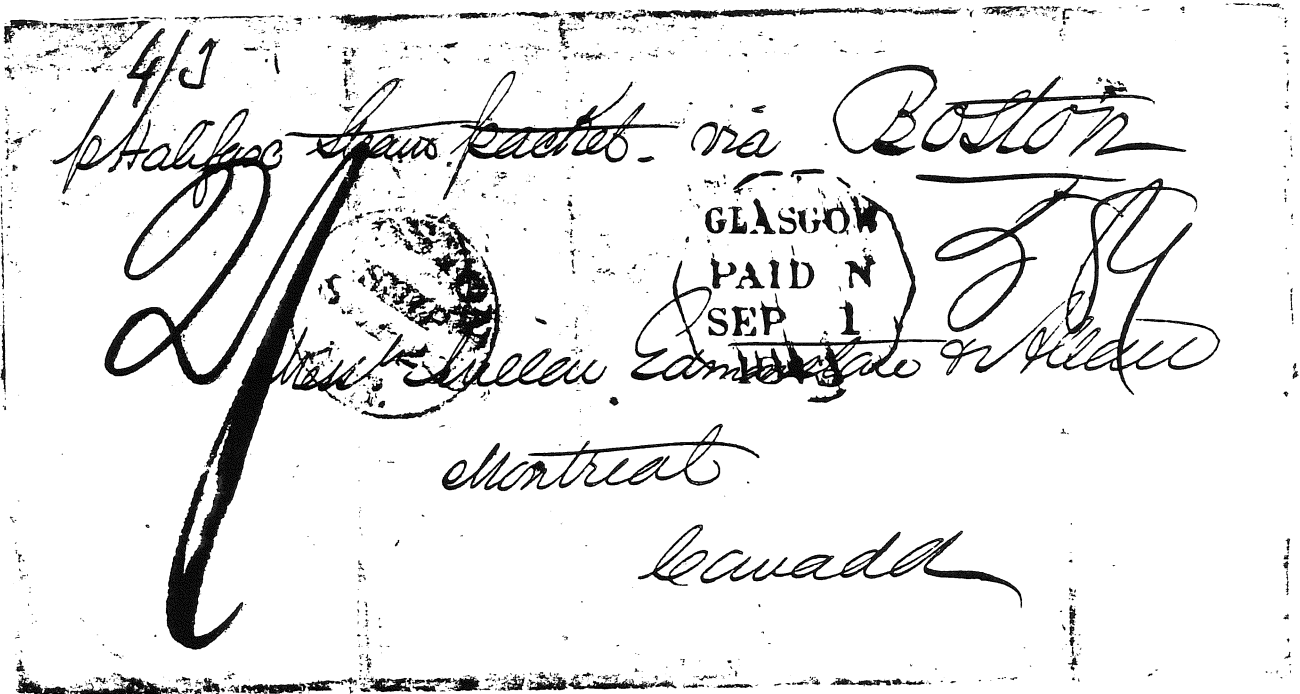 4/9
p Halifax Steam Packet - via Boston
2/
GLASGOW
PAID N
SEP 1
Messrs Millar Edmonstone & Allan
Montreal
Canada